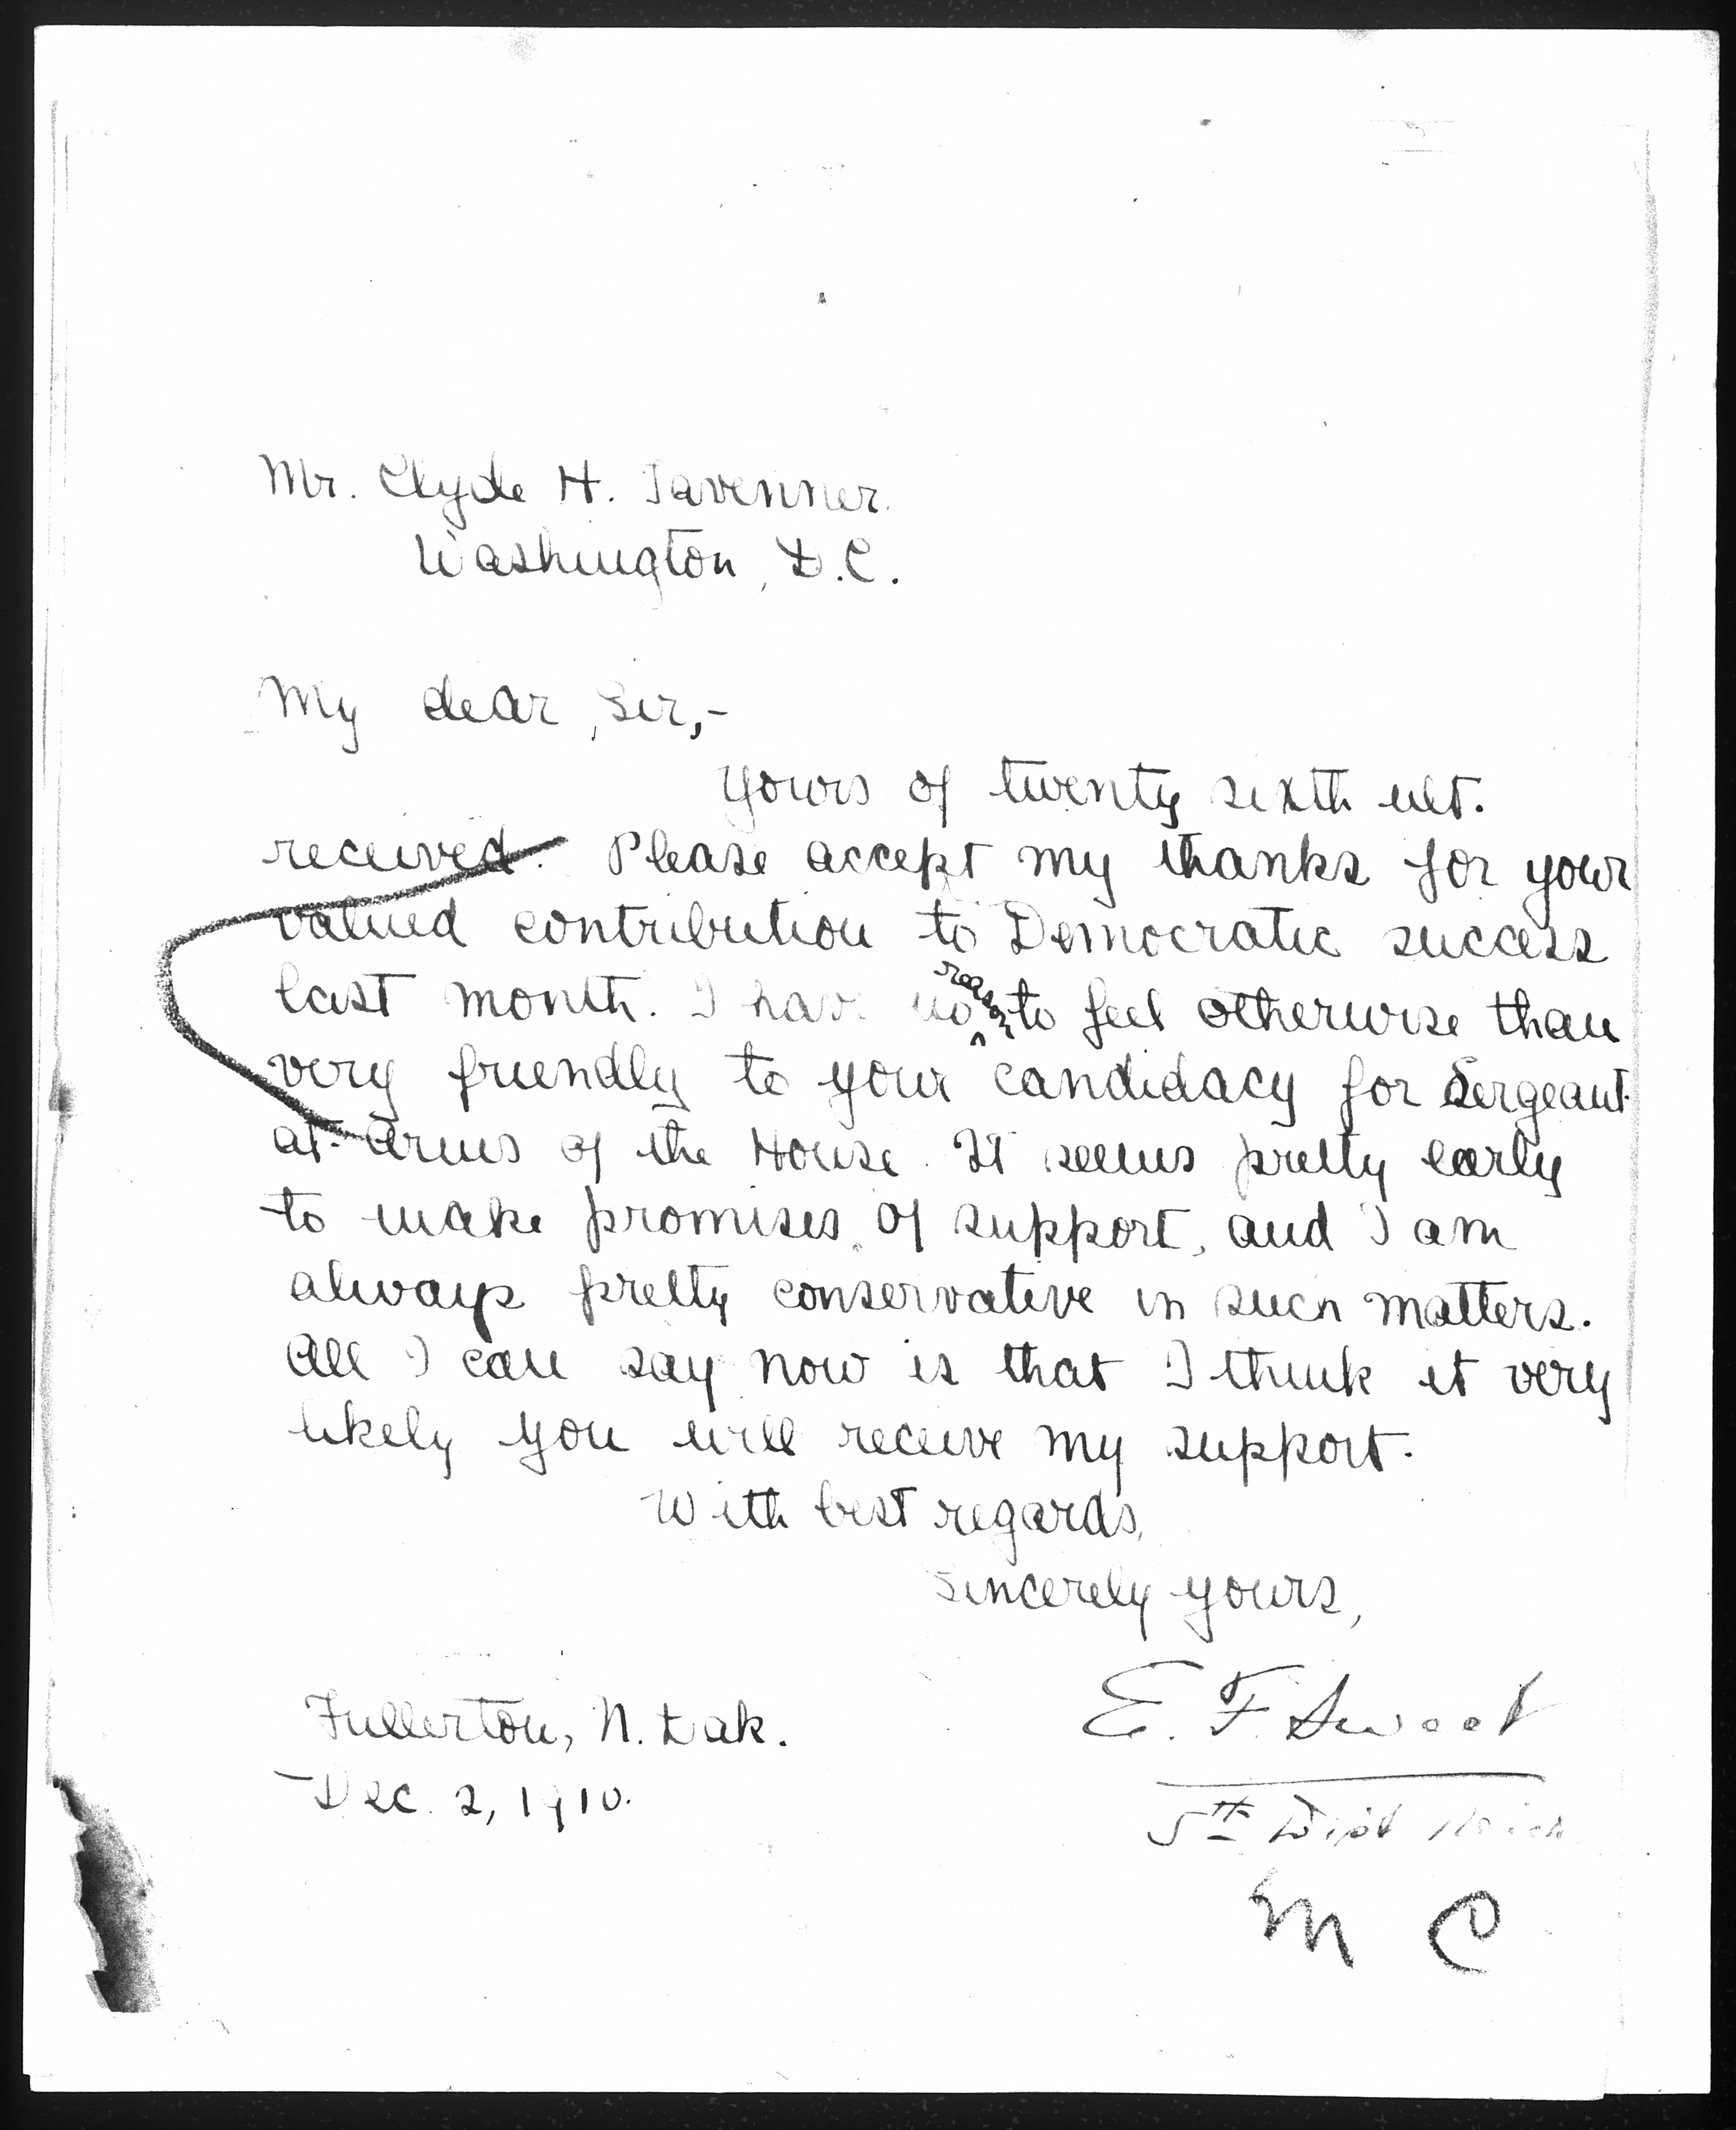 Mr. Clyde H. Tavenner.
Washington, D.C.
My dear Sir,-
Yours of twenty sixth ult.
received. Please accept my thanks for your
valued contribution to Democratic success
last month. I have no reason to feel otherwise than
very friendly to your candidacy for Sergeant-
at-Arms of the House. It seems pretty early
to make promises of support, and I am
always pretty conservative in such matters.
All I can say now is that I think it very
likely you will receive my support.
With best regards,
Sincerely yours,
E. F. Sweet
Fullerton, N. Dak.
Dec. 2, 1910.
5th Dist Mich
M C